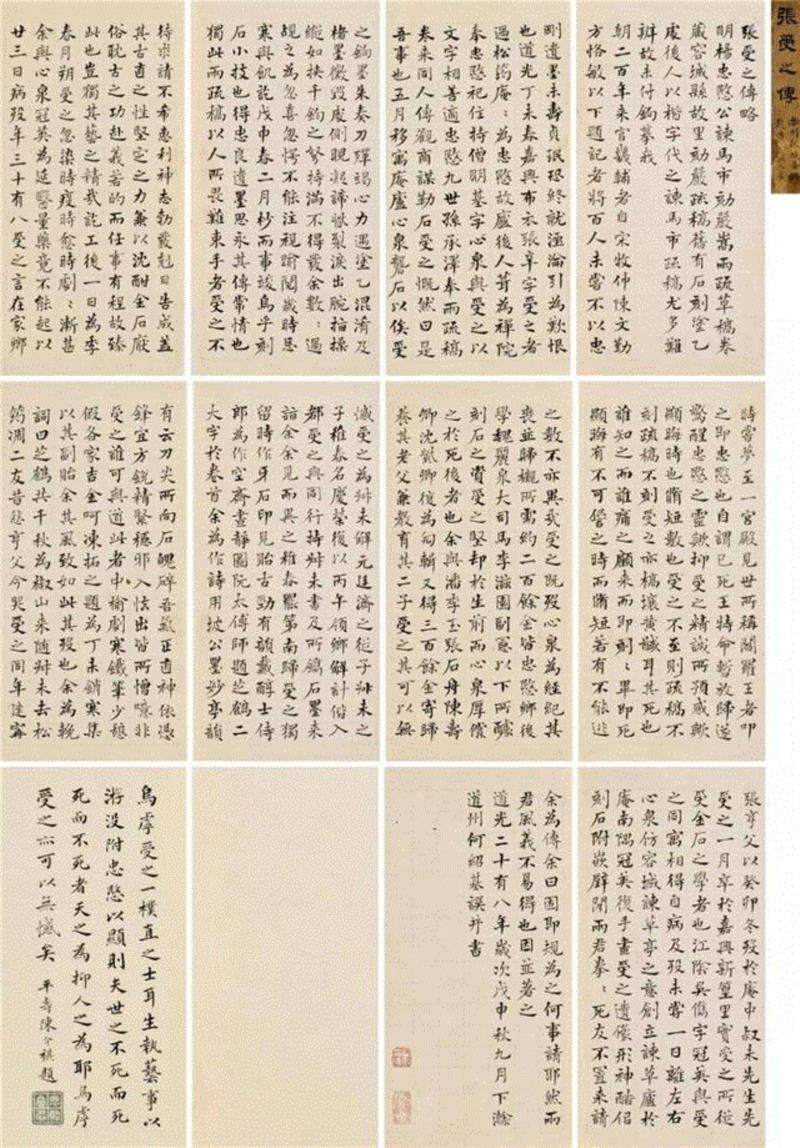 張受之傳
張受之傳略
明楊忠愍公諫馬市劾嚴嵩兩疏草稿卷
藏容城縣故里劾嚴疏稿舊有石刻塗乙
處後人以楷字代之諫馬市疏稿尤多難
辨故未付鉤摹我
朝二百年來官畿輔者自宋牧仲陳文勤
方恪敏以下題記者將百人未嘗不以忠
剛遺墨未壽貞珉終就湮淪引為歎恨
也道光丁未春嘉興布衣張辛字受之者
過松筠庵:為忠愍故廬後人葺為禪院
奉忠愍祀住持僧明基字心泉與受之以
文字相善適忠愍九世孫承澤奉兩疏稿
卷來同人傳觀商謀勒石受之慨然曰是
吾事也五月移寓庵廬心泉礱石以俟受
之鉤墨朱奏刀殫竭心力遇塗乙混淆及
楮墨黴毀處側睨凝諦眥裂淚出腕指操
縱如挾千鈞之弩持滿不得發余數:過
覘之為忽喜忽愕不能注視踰閱歲時忍
寒與飢訖戊申春二月杪而事竣烏乎刻
石小技也得忠良遺墨思永其傳常情也
獨此兩疏稿以人所畏難束手者受之不
特求請不希惠利神志勃發剋日告成蓋
其古直之性堅定之力兼以沈酣金石厭
俗耽古之功赴義若的而任事有程故臻
此也豈獨其藝之精哉訖工後一日為季
春月朔受之忽染時疫時愈時劇:漸甚
余與心泉冠英為延醫量藥竟不能起以
廿三日病歿年三十有八受之言在家鄉
時嘗夢至一宮殿見世所稱閻羅王者叩
之即忠愍也自謂已死王特命暫放歸遂
驚醒忠愍之靈歟抑受之精誠所預感歟
顯晦時也脩短數也受之不至則疏稿不
刻疏稿不刻受之亦槁壤黃馘耳其死也
誰知之而誰痛之顧來而即刻:畢即死
顯晦有不可彊之時而脩短若有不能逃
之數不亦異哉受之既歿心泉為經紀其
喪並歸櫬所需約二百餘金皆忠愍鄉後
學魏麗泉大司馬李滋園副憲以下所醵
刻石之資受之堅却於生前而心泉厚償
之於死後者也余與潘季玉張石舟陳壽
卿沈紫卿復為匄輯又得三百餘金寄歸
養其老父兼教育其二子受之其可以無
憾受之為叔未解元廷濟之從子叔未之
子稚春名慶榮復以丙午領鄉解計偕入
都受之與同行持叔未書及所鐫石墨來
詣余余見而異之稚春罷第南歸受之獨
留時作牙石印見貽古勁有韻戴醇士侍
郎為作空齋畫靜圖阮太傅師題芝鶴二
大字於卷首余為作詩用坡公墨妙亭韻
有云刀尖所向石魄碎吾氣正直神依憑
鋒宜方銳精緊穩邪入佻出皆所憎噫非
受之誰可與道此者中榆劇寒鐵筆少稜
假各家吉金呵凍拓之題為丁未銷寒集
以其副貽余其風致如此其歿也余為輓
詞曰芝鶴共千秋為椒山來隨叔未去松
筠凋二友昔悲亨父今哭受之同年建寧
張亨父以癸卯冬歿於庵中叔未先生先
受之一月卒於嘉興新篁里實受之所從
受金石之學者也江陰吳儁字冠英與受
之同寓相得自病及歿未嘗一日離左右
心泉仿容城諫草亭之意創立諫草廬於
庵南隅冠英復手畫受之遺像形神酷侣
刻石附嵌壁間而君拳:死友不置來請
余為傳余曰固即規為之何事請耶然而
君風義不易得也因並著之
道光二十有八年歲次戊申秋九月下澣
道州何紹基譔并書
烏虖受之一樸直之士耳生執藝事以
游沒附忠愍以顯則夫世之不死而死
死而不死者天之為抑人之為耶烏虖
受之亦可以無憾矣 平壽陳介祺題